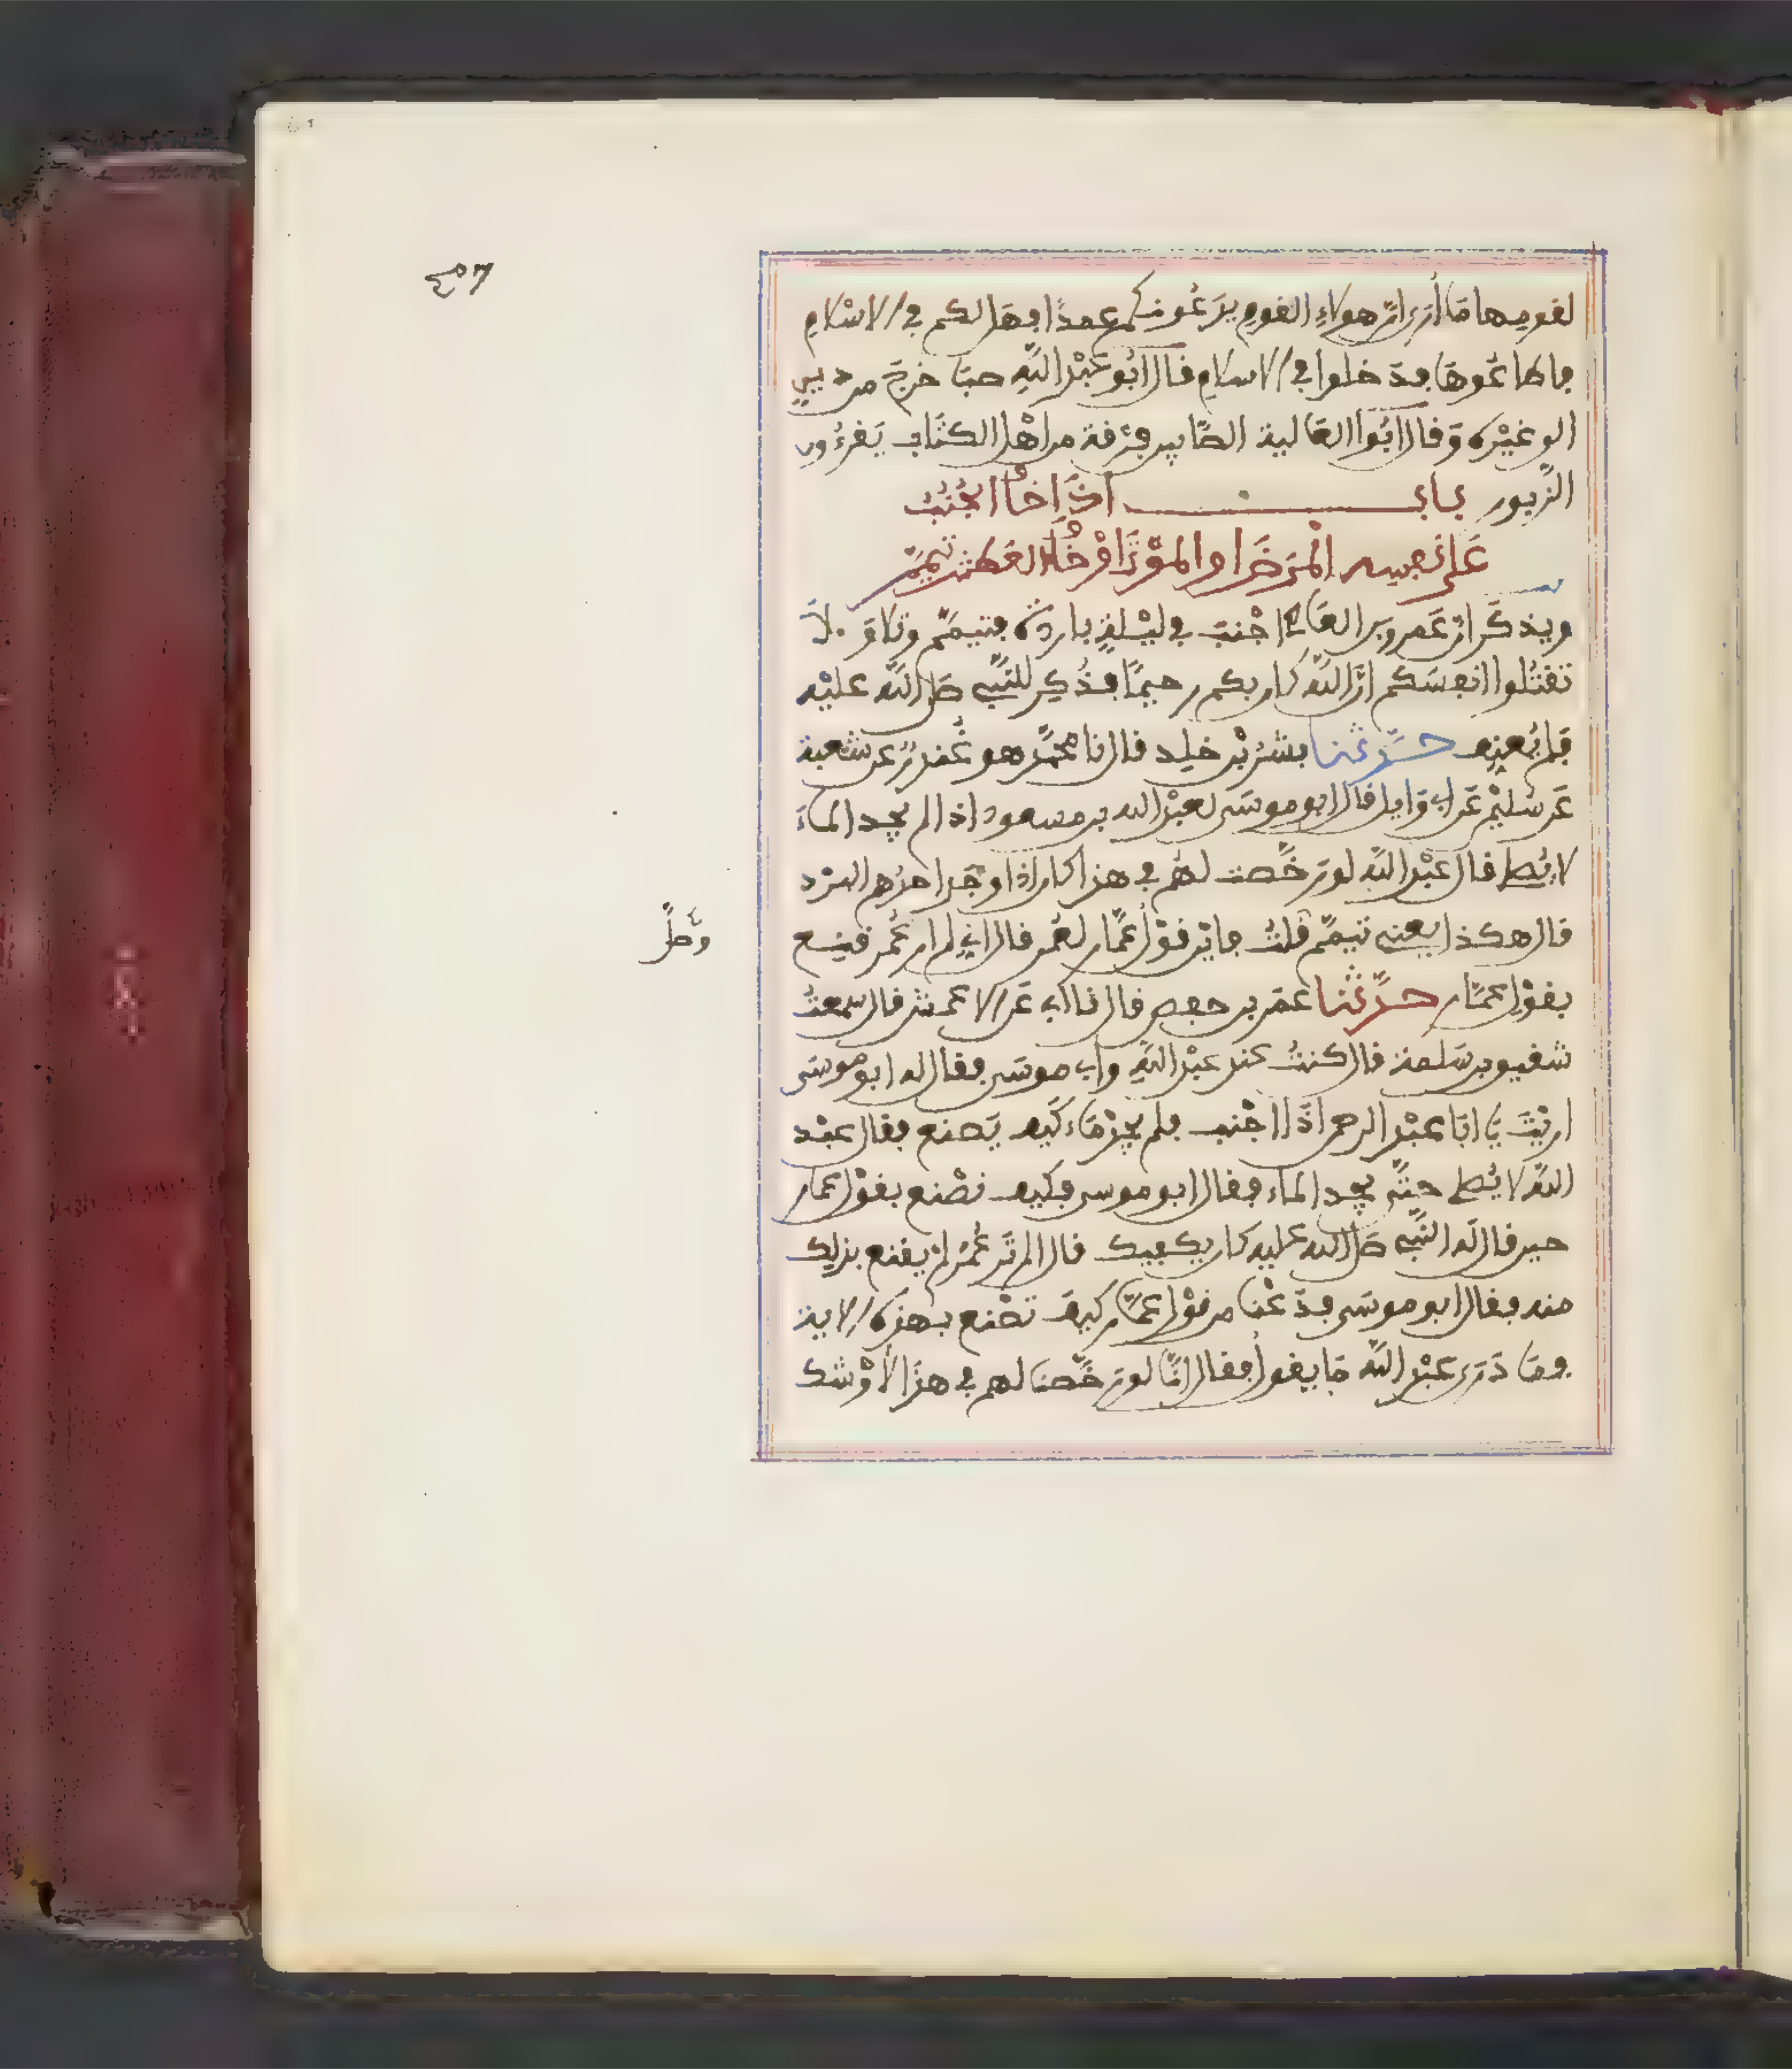 لقومها ما أرى ان هؤلاء القوم يدعونكم عمدا فهل لكم في الاسلام
فاطاعوها فدخلوا في الاسلام قال ابو عبد الله صبا خرج من دين
الى غيره وقال ابوا العالية الصابين فرقة من اهل الكتاب يقرءون
الزبور باب اذا خاف الجنب
على نفسه المرض او الموت او خاف العطش تيمم
ويذكر ان عمرو بن العاصي اجنب في ليلة باردة فتيمم وتلا ولا
تقتلوا انفسكم ان الله كان بكم رحيما فذكر للنبي صلى الله عليه
فلم يعنفه حدثنا بشر بن خلد قال نا محمد هو غندر عن شعبة
عن سليمن عن ابي وايل قال ابو موسى لعبد الله بن مسعود اذا لم يجد الماء
لا يصلي قال عبد الله لو رخصت لهم في هذا كان اذا وجد احدهم البرد
قال هكذا يعني تيمم قلت فاين قول عمار لعمر قال اني لم ار عمر قنع
بقول عمار حدثنا عمر بن حفص قال نا ابي عن الاعمش قال سمعت
شقيق بن سلمة قال كنت عند عبد الله وابي موسى فقال له ابو موسى
اريت يا ابا عبد الرحمن اذا اجنب فلم يجد ماء كيف يصنع فقال عبد
الله لا يصلي حتى يجد الماء فقال ابو موسى فكيف تصنع بقول عمار
حين قال له النبي صلى الله عليه كان يكفيك قال الم تر عمر لم يقنع بذلك
منه فقال ابو موسى فدعنا من قول عمار كيف تصنع بهذه الاية
فما درى عبد الله ما يقول فقال انا لو رخصنا لهم في هذا لاوشك
وصلى